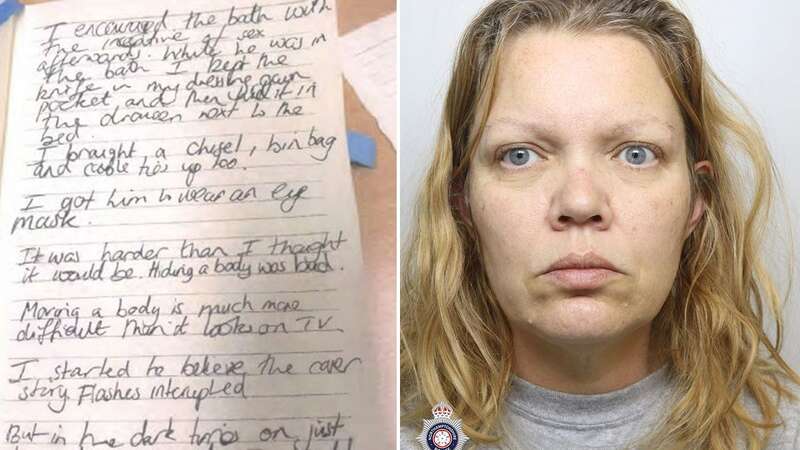 I encouraged the bath with
the incentive of sex
afterwards. While he was in
the bath I kept the
knife in my dressing gown
pocket and then hid it in
the drawer next to the
bed.
I brought a chisel, bin bag
and cable ties up too.
I got him to wear an eye
mask.
It was harder than I thought
it would be. Hiding a body was bad.
Moving a body is much more
difficult than it looks on TV.
I started to believe the cover
story. Flashes interupted
But in the dark on just